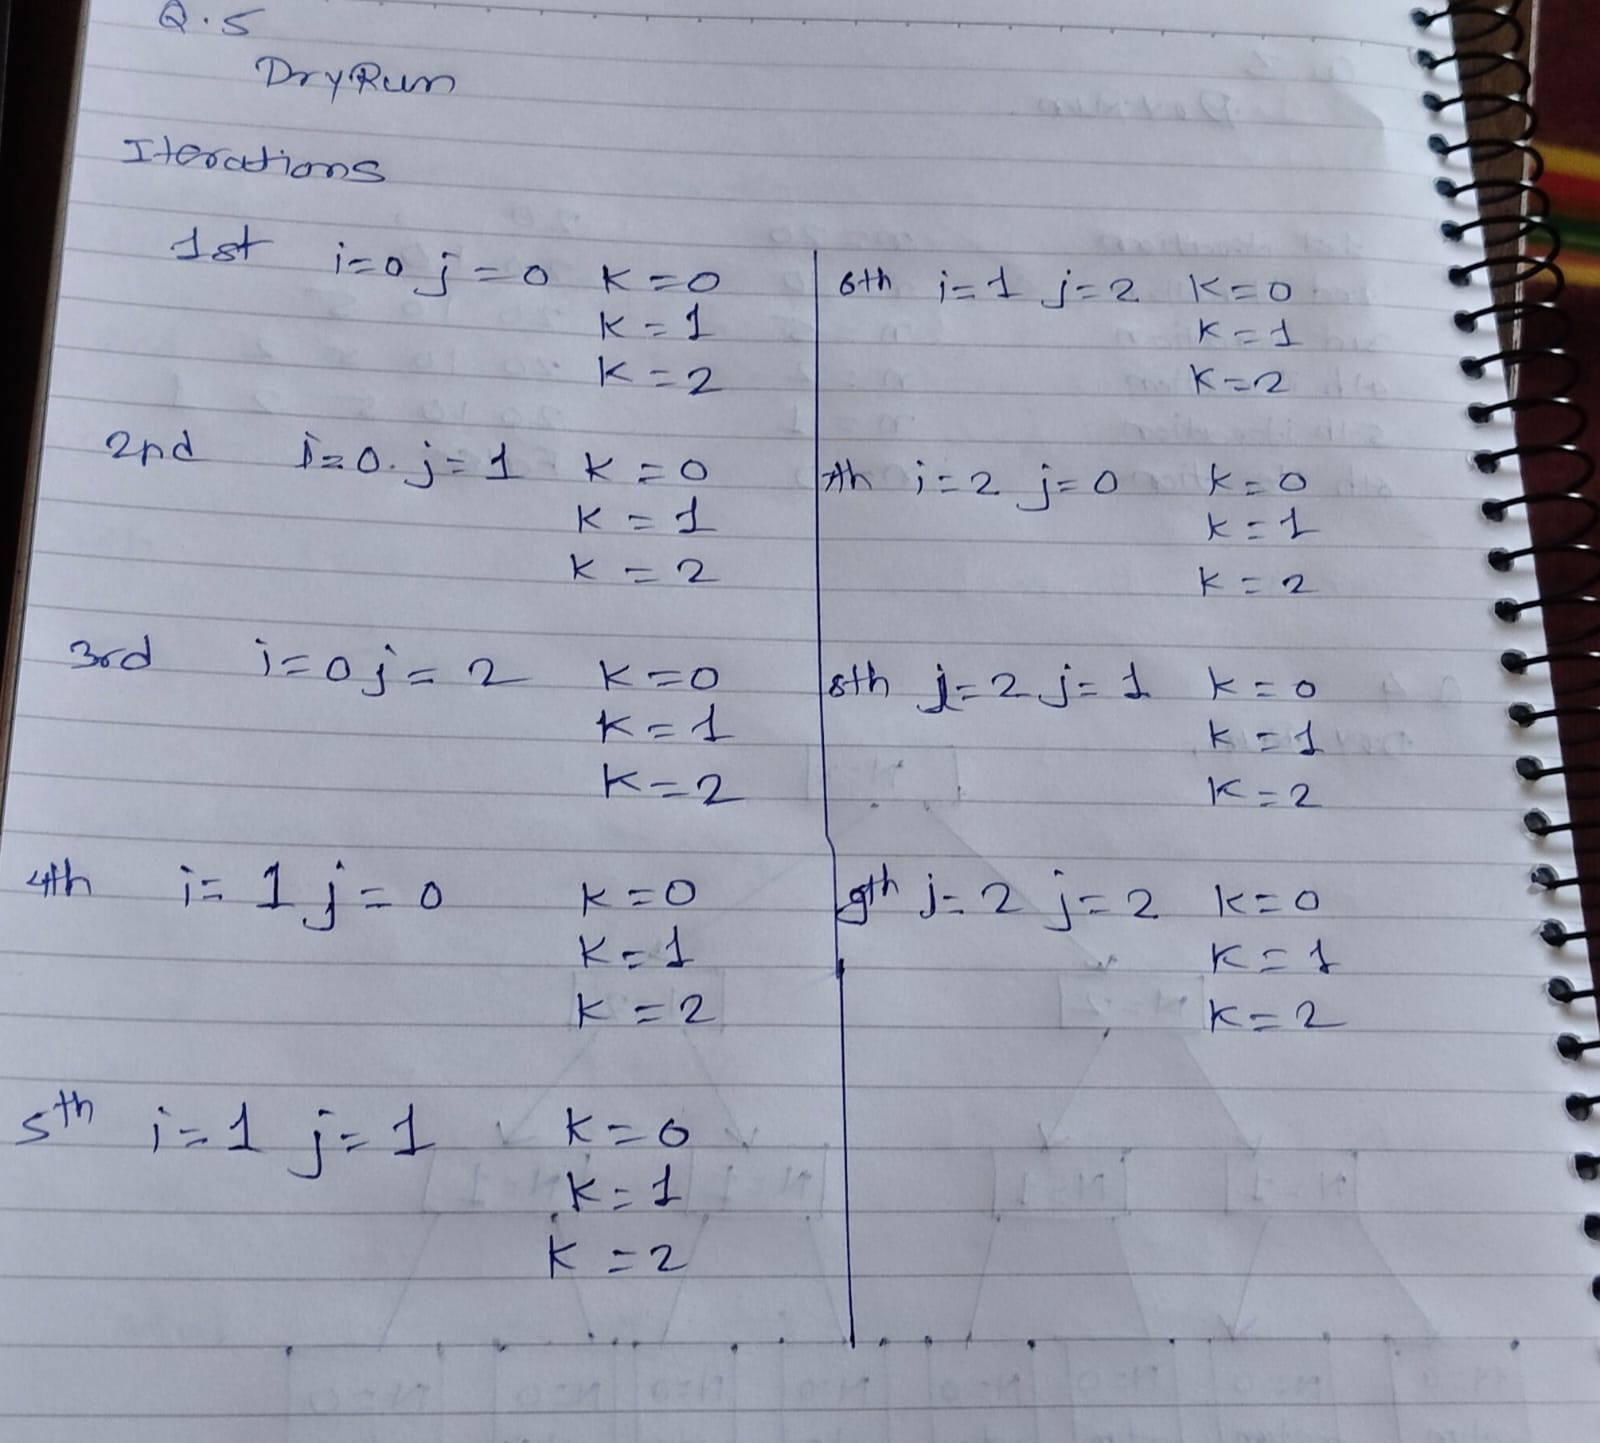 Q.5
DryRun
Iterations
1st i=0 j=0 K=0
K=1
K=2
2nd i=0. j=1 K=0
K=1
K=2
3rd i=0 j=2 K=0
K=1
K=2
4th i=1 j=0 K=0
K=1
K=2
5th i=1 j=1 K=0
K=1
K=2
6th i=1 j=2 K=0
K=1
K=2
7th i=2 j=0 K=0
K=1
K=2
8th j=2 j=1 K=0
K=1
K=2
9th j=2 j=2 K=0
K=1
K=2